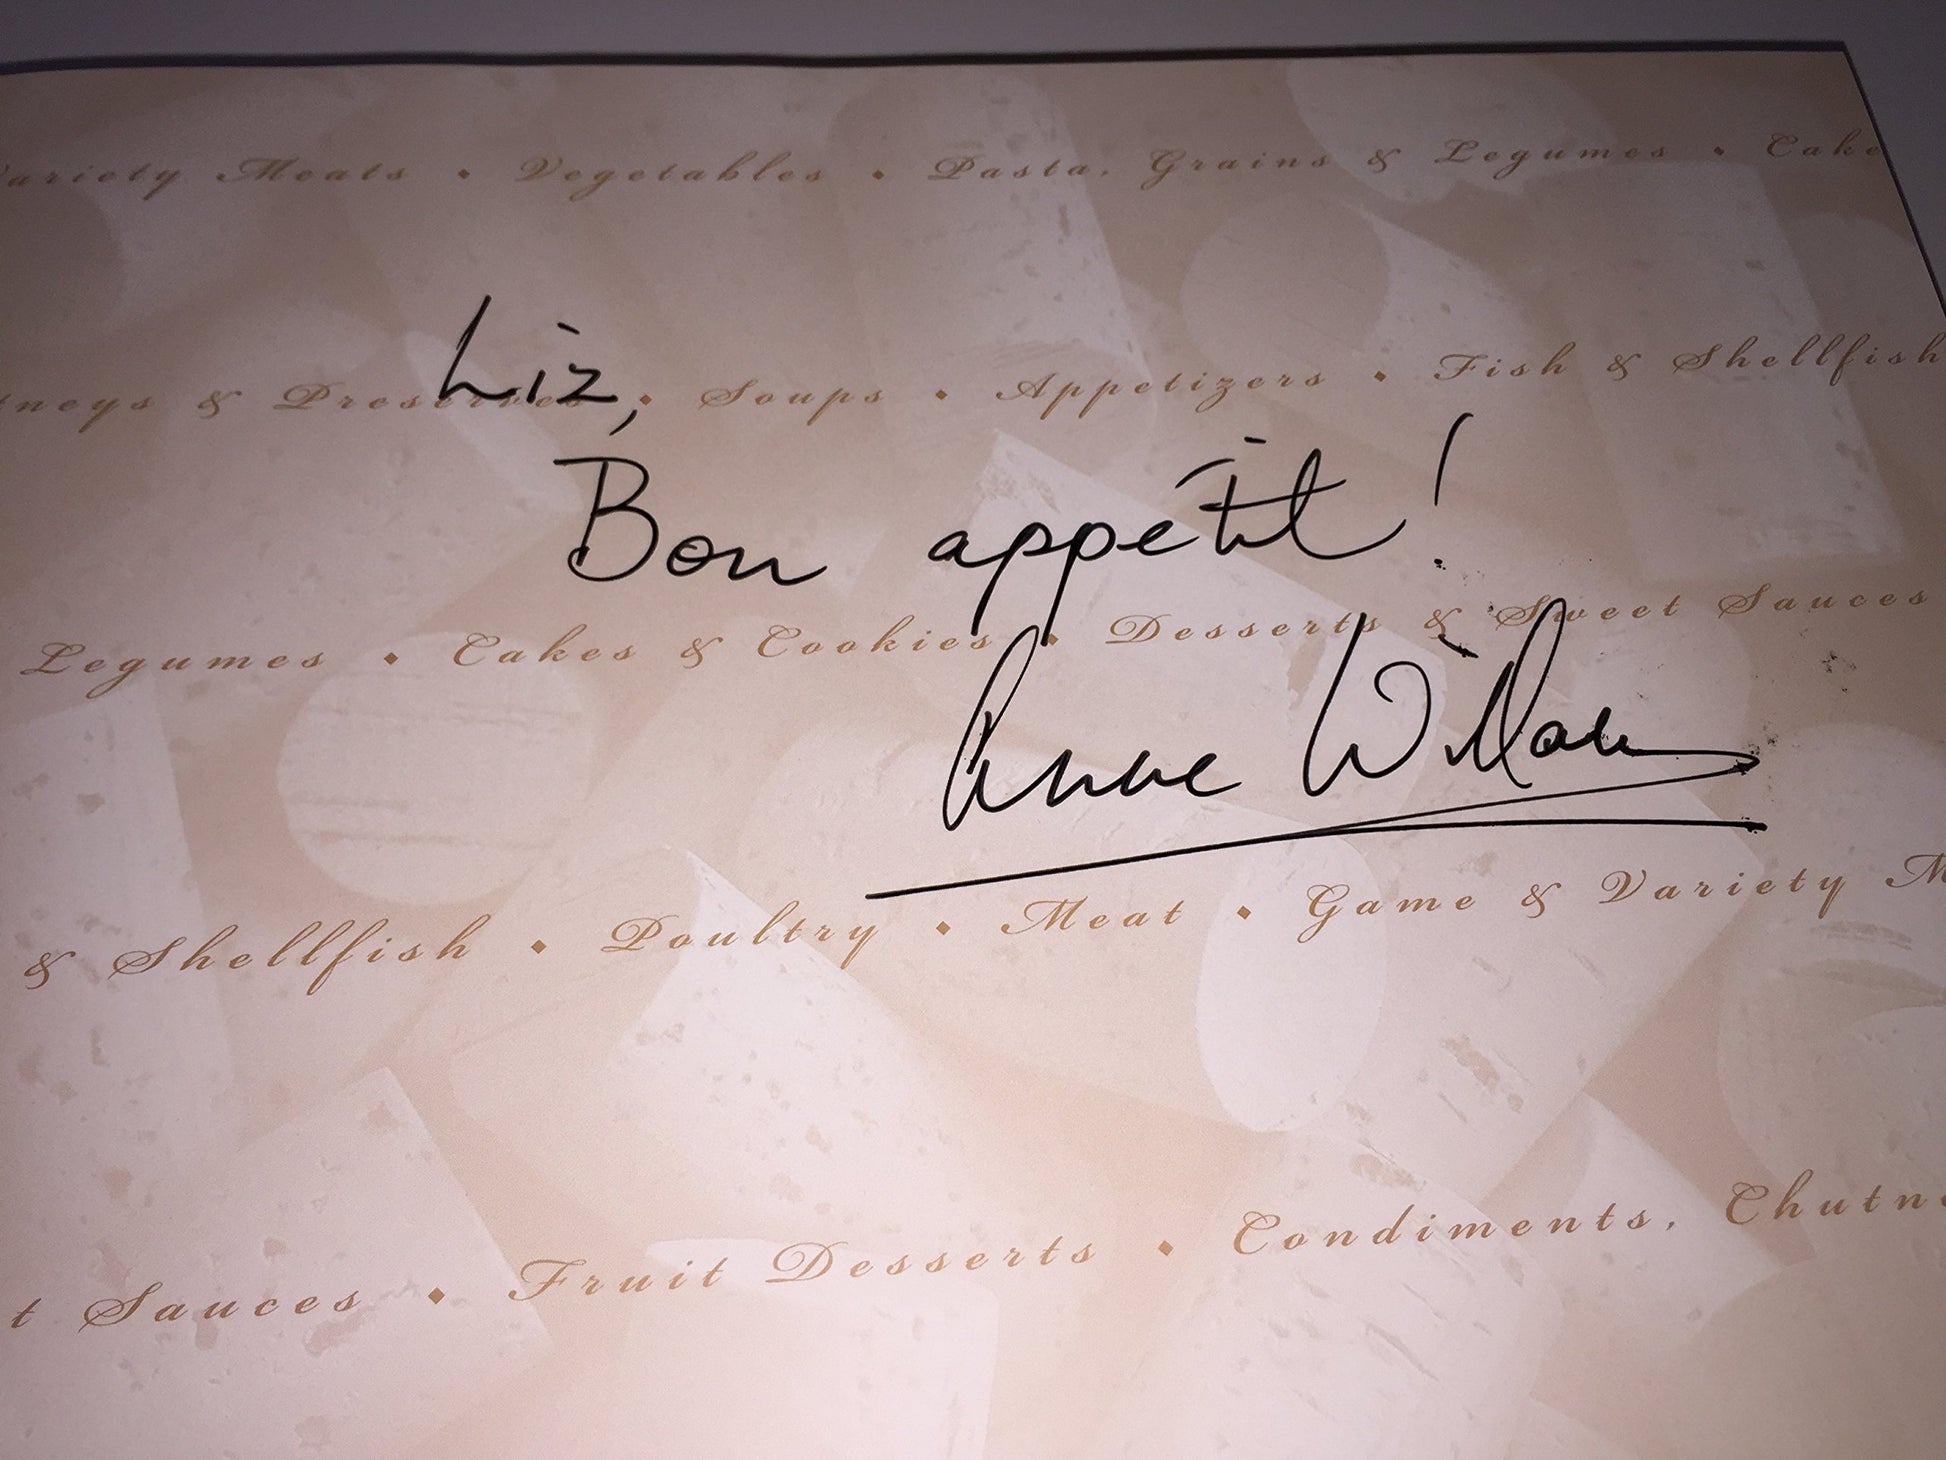 ariety Meats • Vegetables • Pasta, Grains & Legumes • Cake
tneys & Preserves • Soups • Appetizers • Fish & Shellfish
Liz,
Bon appétit!
Legumes • Cakes & Cookies • Desserts & Sweet Sauces
Anne Willan
& Shellfish • Poultry • Meat • Game & Variety M
t Sauces • Fruit Desserts • Condiments, Chutn